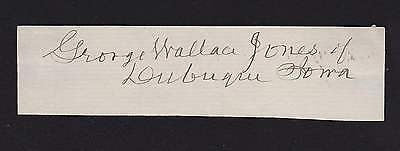 George Wallace Jones of
Dubuque Iowa